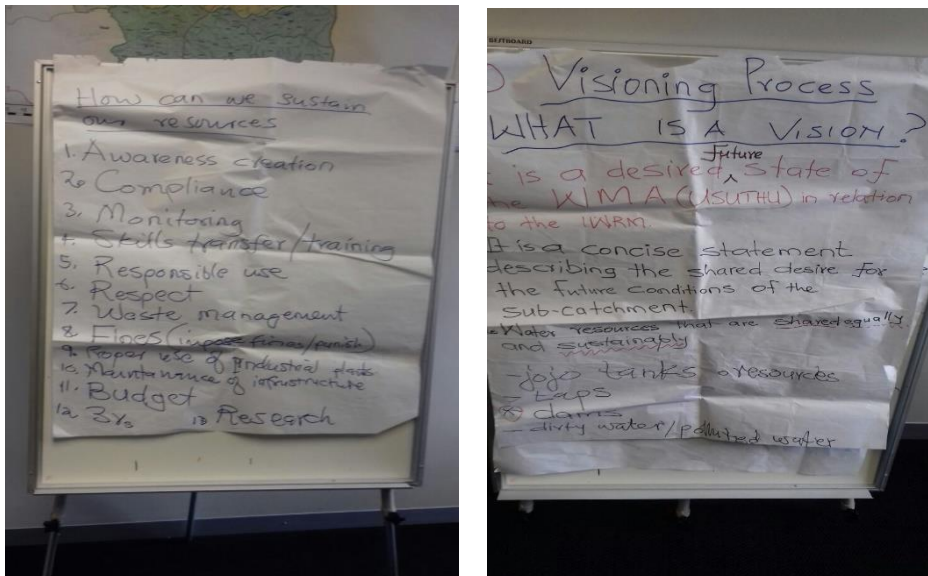 How can we sustain
our resources
1. Awareness creation
2. Compliance
3. Monitoring
4. Skills transfer/training
5. Responsible use
6. Respect
7. Waste management
8. Fines (impose fines/punish)
9. Proper use of Industrial
10. Maintainance of infrastructure
11. Budget
12. 3rs 13 Research
BESTBOARD
Visioning Process
WHAT IS A VISION?
Future
is a desired ^ state of
the WMA (USUTHU) in relation
to the IWRM.
It is a concise statement
describing the shared desire for
the future conditions of the
sub-catchment.
Water resources that are shared equally
and sustainably
- jojo tanks resources
- Taps
dams
- dirty water/polluted water